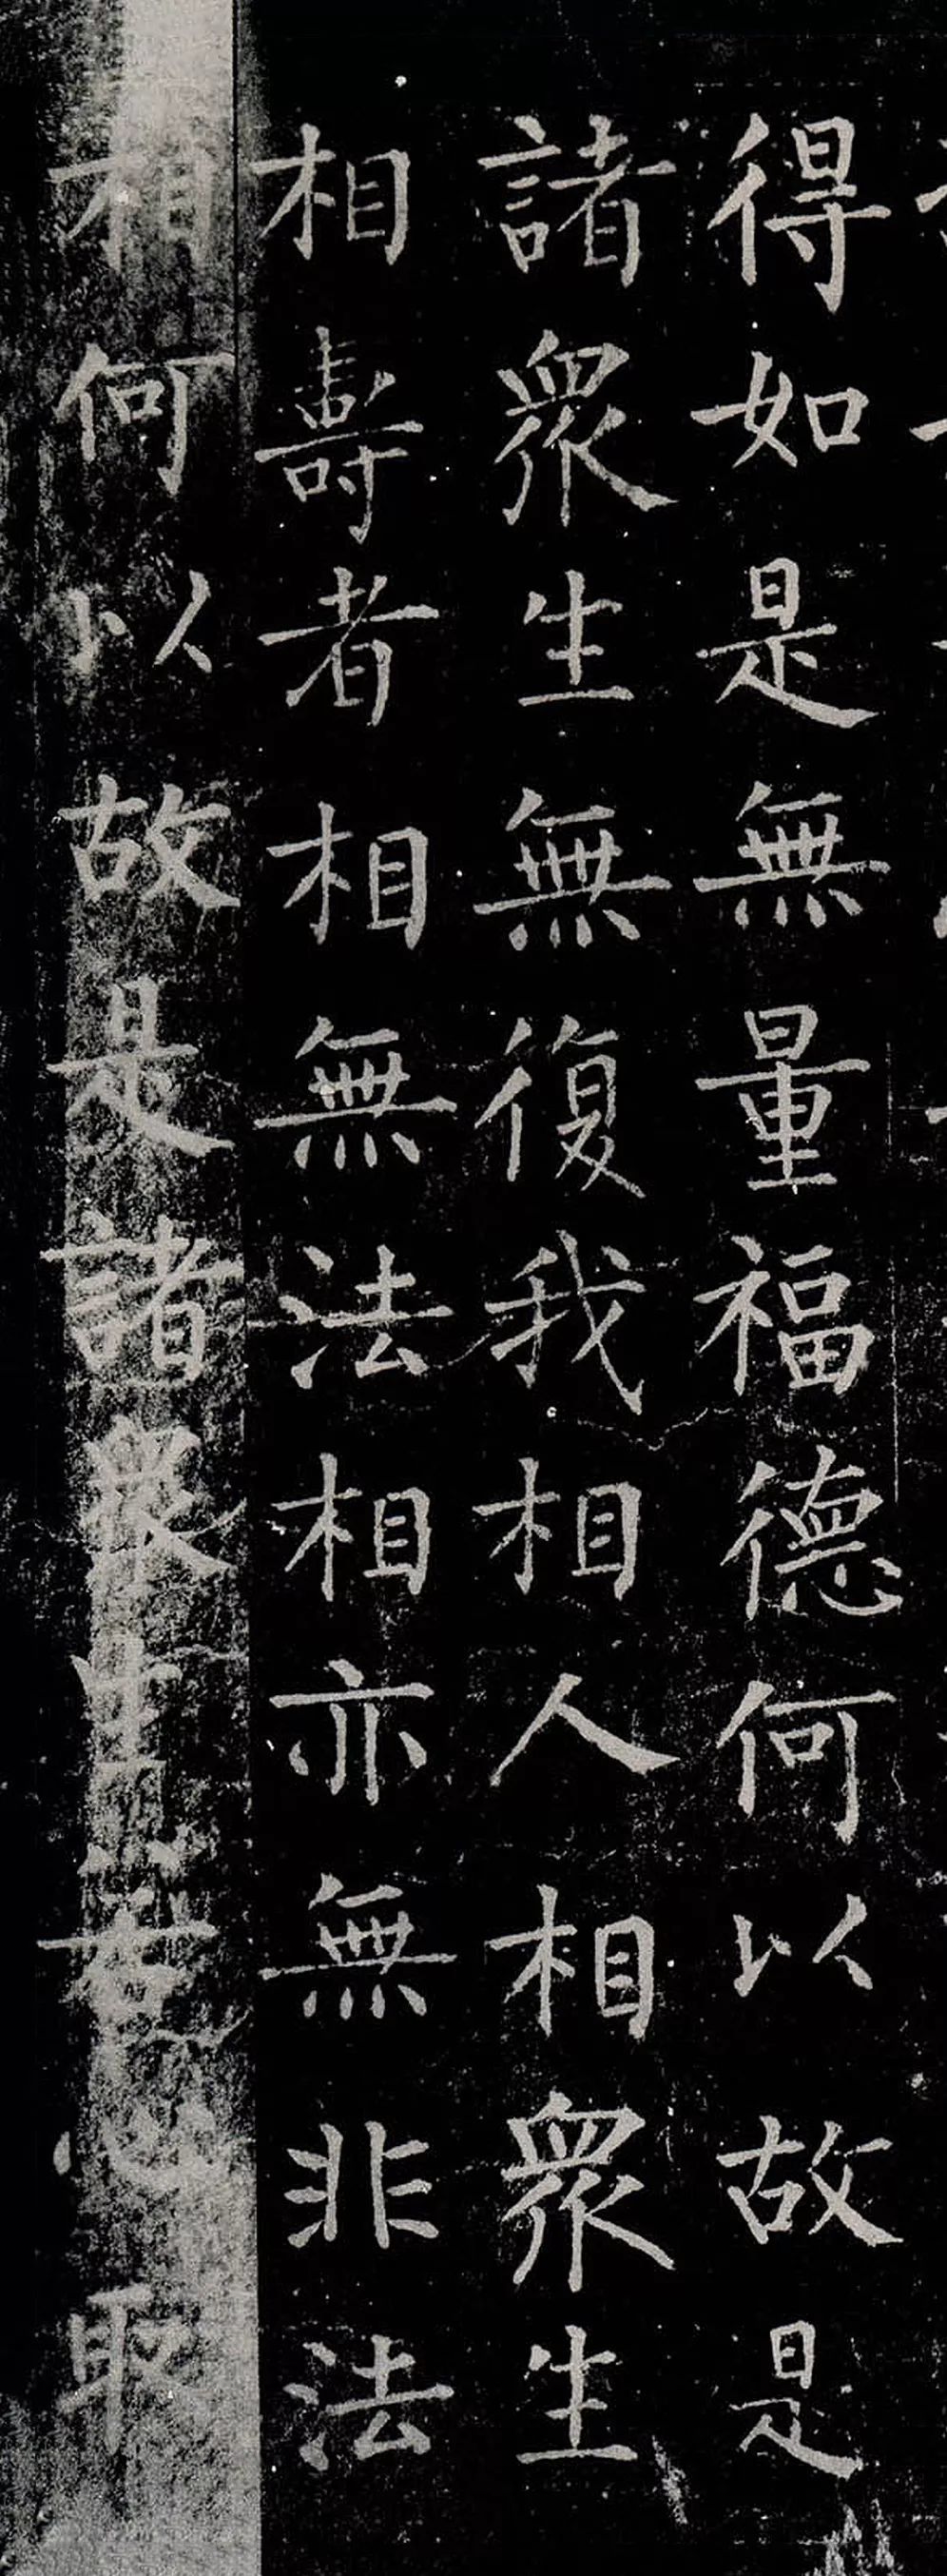 得如是無量福德何以故是
諸衆生無復我相人相衆生
相壽者相無法相亦無非法
相何以故是諸衆生若心取